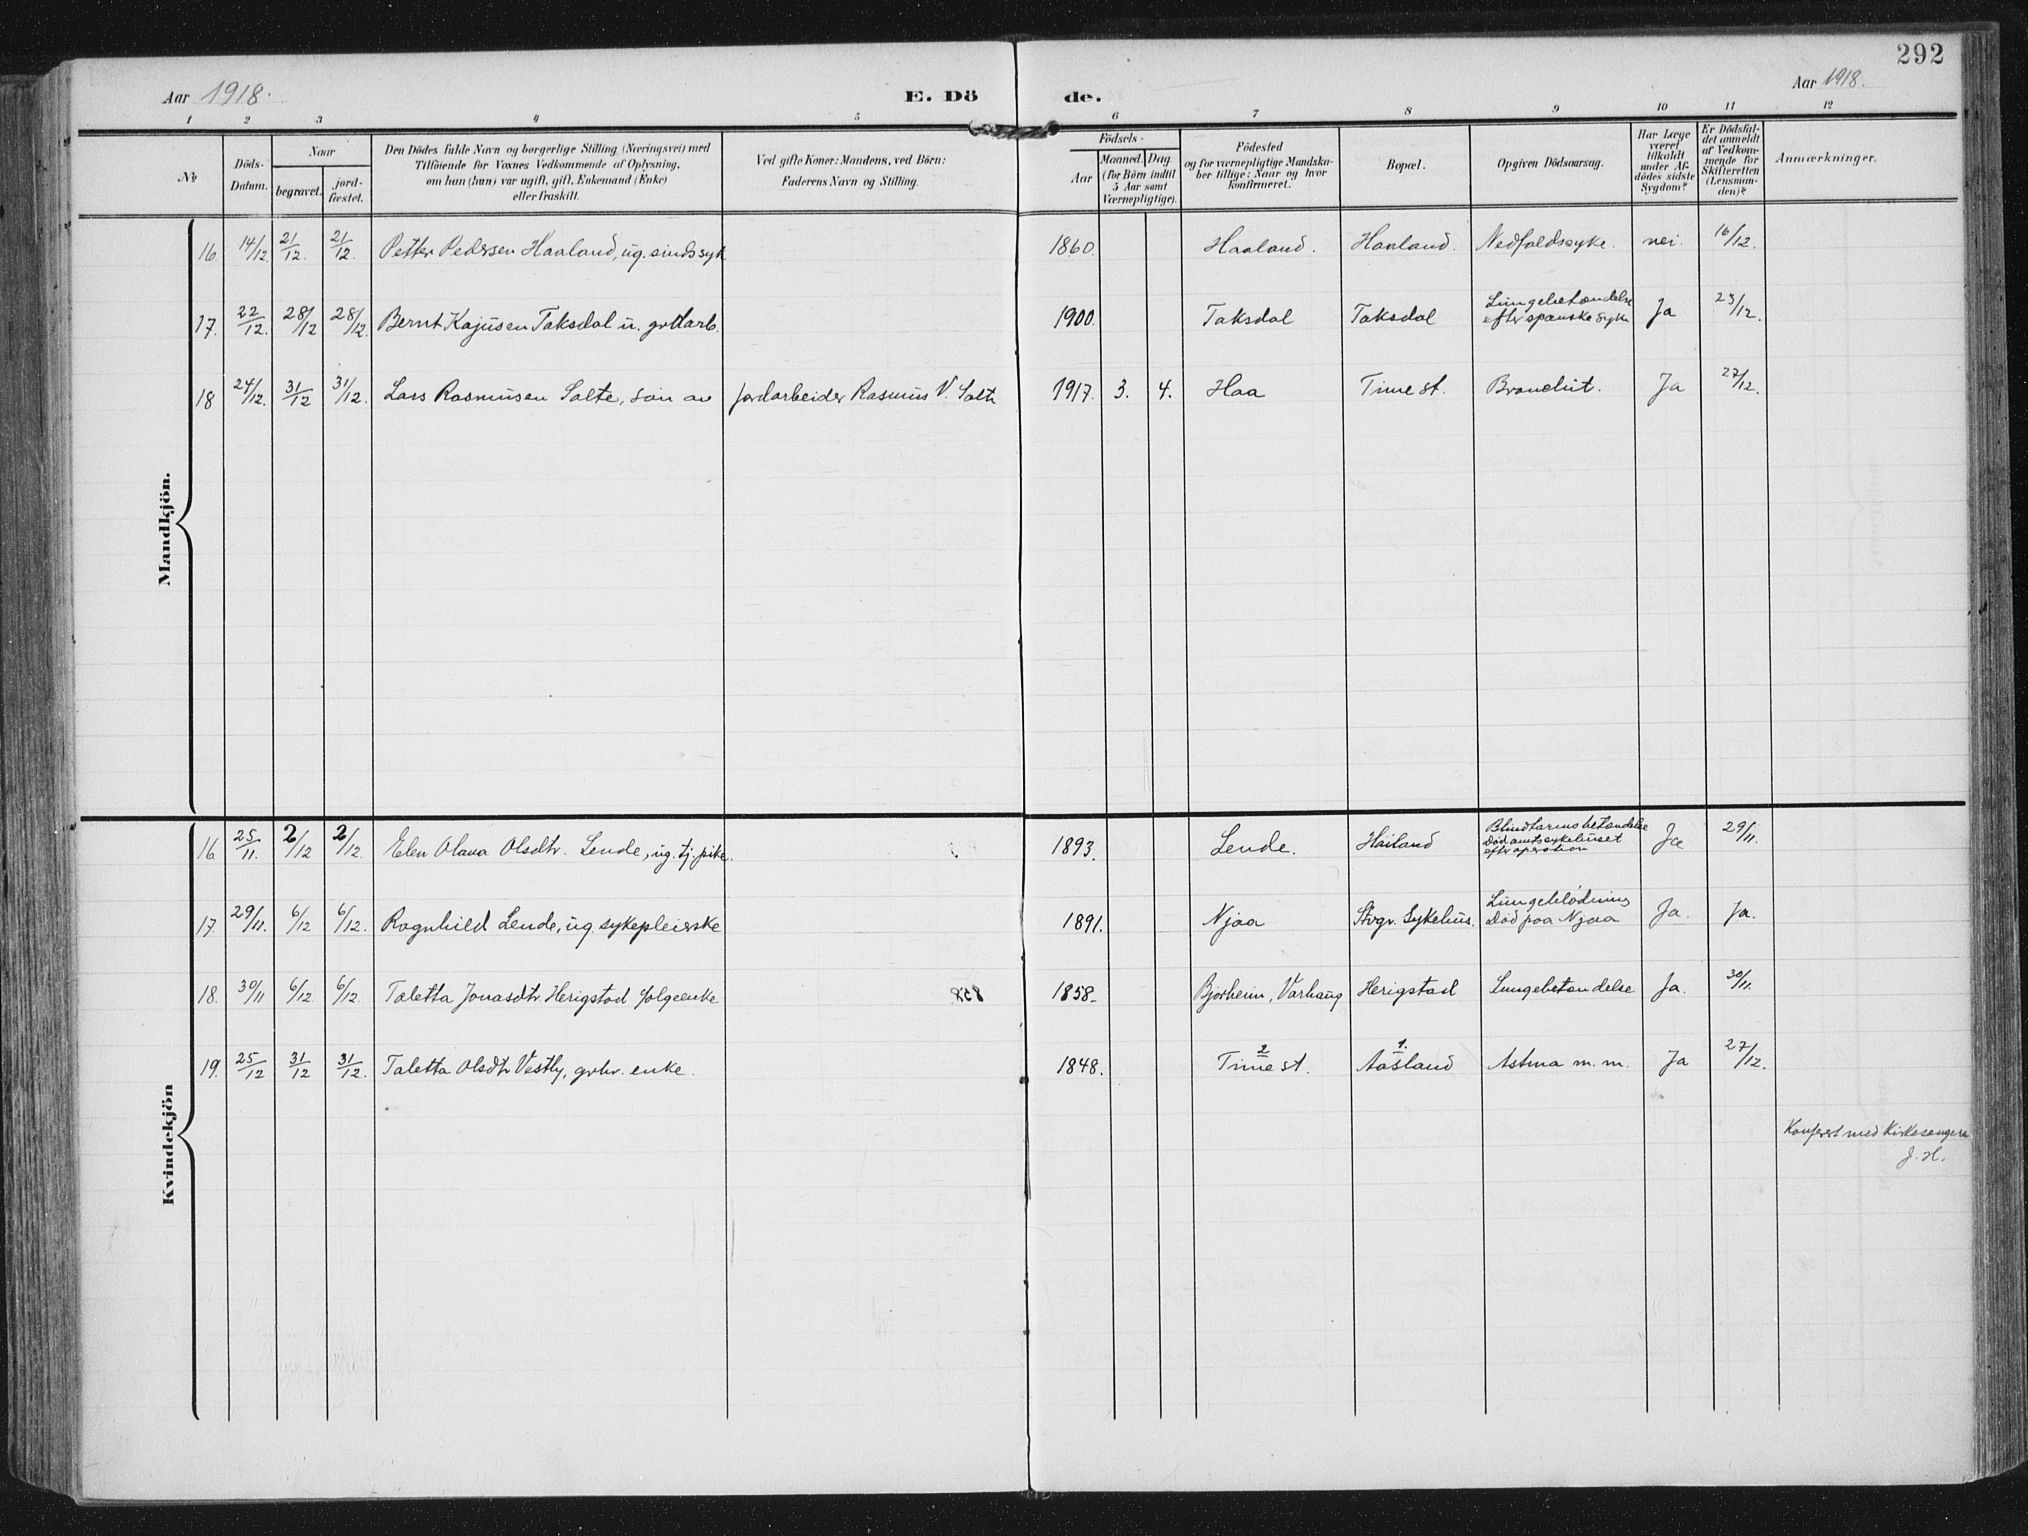 292
Aar 1918. E. Dö de. Aar 1918.
1 2 3 4 5 6 7 8 9 10 11 12
No
Döds-Datum.
Naar
begravet.
jord-fæstet.
Den Dödes fulde Navn og borgerlige Stilling (Næringsvei) med
Tilföiende for Voxnes Vedkommende af Oplysning,
om han (hun) var ugift, gift, Enkemand (Enke)
eller fraskilt.
Ved gifte Koner: Mandens, ved Börn:
Faderens Navn og Stilling.
Födsels-
Aar
Maaned. Dag.
(for Börn indtil
5 Aar samt
Værnepligtige).
Födested
og for værnepligtige Mandska-
ber tillige: Naar og hvor
konfirmeret.
Bopæl.
Opgiven Dödsaarsag.
Har Læge
været
tilkaldt
under Af-
dödes sidste
Sygdom?
Er Dödsfal-
det anmeldt
af Vedkom-
mende for
Skifteretten
(Lensman-
den)?
Anmærkninger.
Mandkjön.
16 14/12. 21/12. 21/12. Petter Pedersen Haaland, ug. sindssyk 1860. Haaland. Haaland. Nedfaldssyke. nei. 16/12.
17. 22/12. 28/12 28/12. Bernt Kajusen Taksdal u. grdarb. 1900. Taksdal Taksdal Lungebetændelse efter spanske syke Ja 23/12.
18 24/12. 31/12 31/12. Lars Rasmusen Salte, søn av jordarbeider Rasmus V. Salte 1917. 3. 4. Haa Time st. Brandsut. Ja 27/12.
Kvindekjön
16. 25/11. 2/12 2/12. Elen Olava Olsdtr. Lende, ug. tj. pike. 1893. Lende. Hailand Blindtarmsbetændelse Død amtssykehuset efter operation Ja 29/11.
17. 29/11. 6/12 6/12. Ragnhild Lende, ug. sykepleierske 1891. Njaa Stvgr. Sykehus. Lungeblødning Død paa Njaa Ja. Ja.
18. 30/11 6/12 6/12. Taletta Jonasdtr Herigstad folgeenke 1858. Bjorheim, Varhaug Herigstad Lungebetændelse Ja. 30/11.
19. 25/12 31/12 31/12. Taletta Olsdtr Vestly, grbr. enke. 1848. 2 Time st. 1. Aasland Astma m. m. Ja 27/12.
Konferert med Kirkesangeren
J. H.